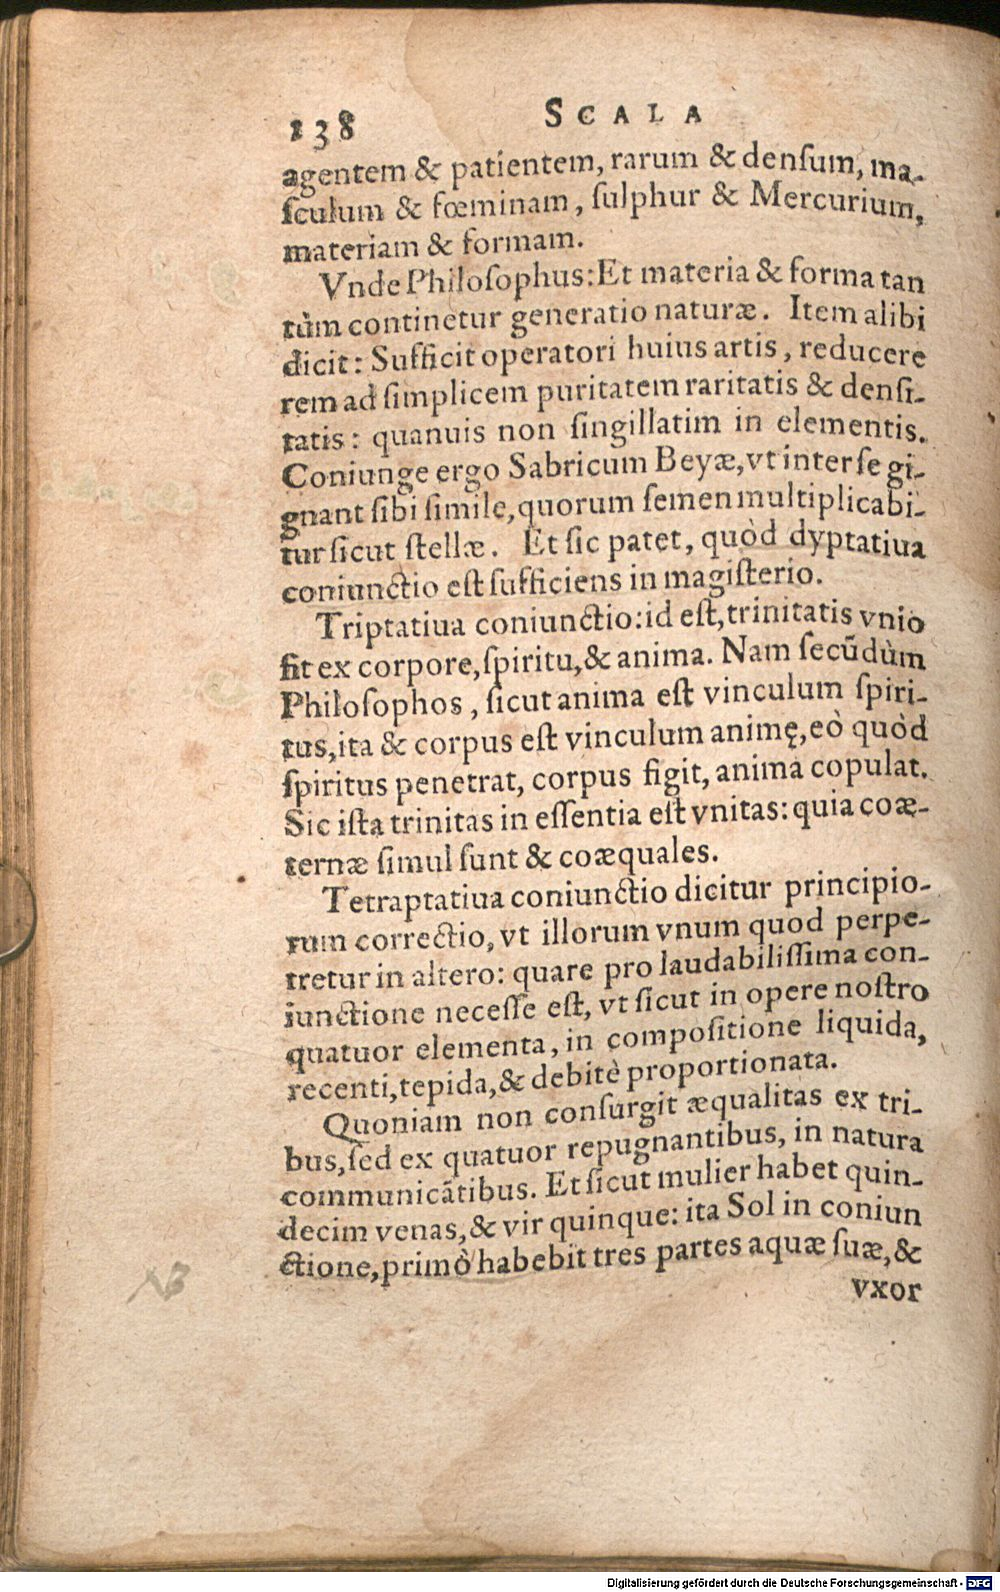 138 SCALA
agentem & patientem, rarum & densum, ma-
sculum & fœminam, sulphur & Mercurium,
materiam & formam.
Vnde Philosophus: Et materia & forma tan
tùm continetur generatio naturæ. Item alibi
dicit: Sufficit operatori huius artis, reducere
rem ad simplicem puritatem raritatis & densi-
tatis: quanuis non singillatim in elementis.
Coniunge ergo Sabricum Beyæ, vt inter se gi-
gnant sibi simile, quorum semen multiplicabi-
tur sicut stellæ. Et sic patet, quòd dyptatiua
coniunctio est sufficiens in magisterio.
Triptatiua coniunctio: id est, trinitatis vnio
fit ex corpore, spiritu, & anima. Nam secũdùm
Philosophos, sicut anima est vinculum spiri-
tus, ita & corpus est vinculum animę, eò quòd
spiritus penetrat, corpus figit, anima copulat.
Sic ista trinitas in essentia est vnitas: quia coæ-
ternæ simul sunt & coæquales.
Tetraptatiua coniunctio dicitur principio-
rum correctio, vt illorum vnum quod perpe-
tretur in altero: quare pro laudabilissima con-
iunctione necesse est, vt sicut in opere nostro
quatuor elementa, in compositione liquida,
recenti, tepida, & debitè proportionata.
Quoniam non consurgit æqualitas ex tri-
bus, sed ex quatuor repugnantibus, in natura
communicãtibus. Et sicut mulier habet quin-
decim venas, & vir quinque: ita Sol in coniun
ctione, primò habebit tres partes aquæ suæ, &
vxor
NB
Digitalisierung gefördert durch die Deutsche Forschungsgemeinschaft - DFG